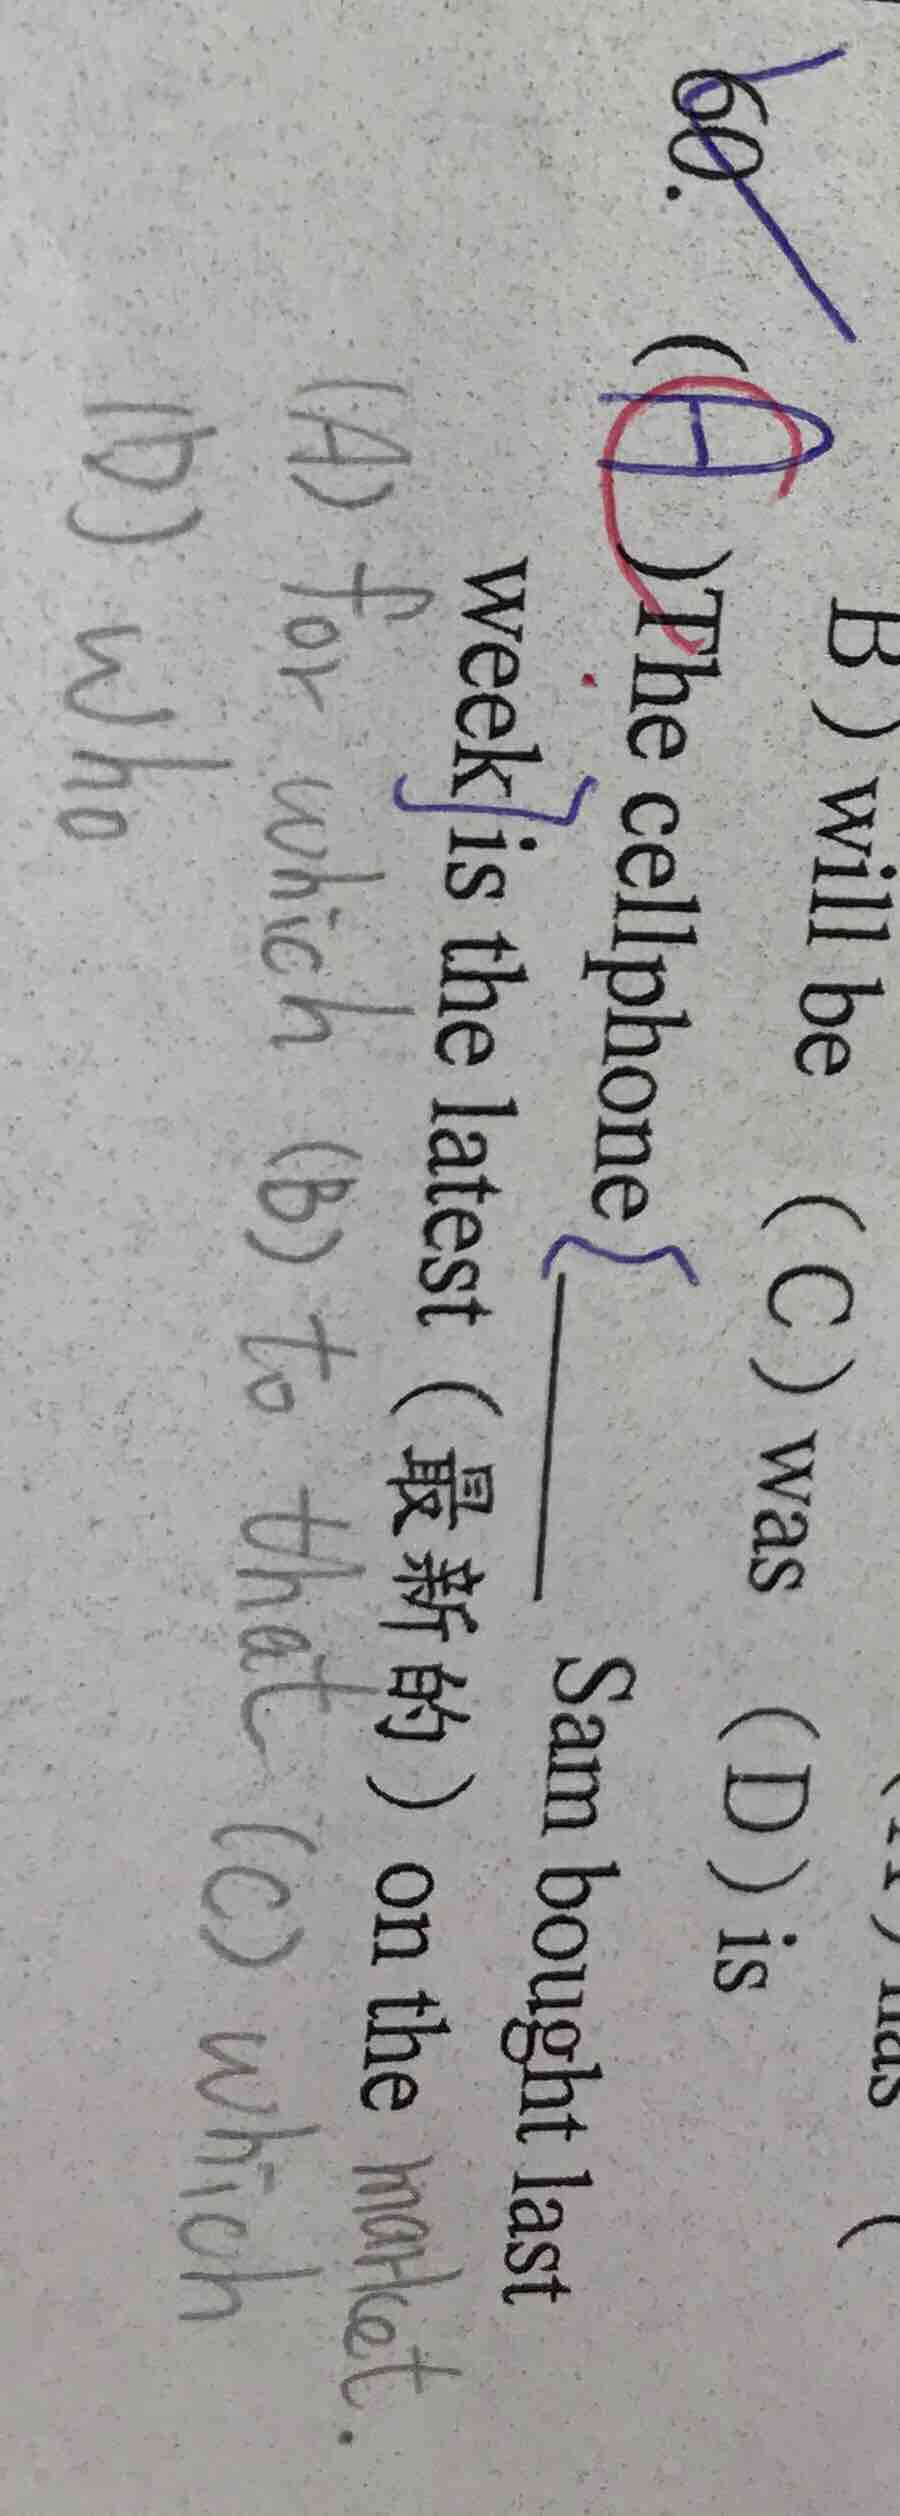 B) will be (C) was (D) is
60. (A)The cellphone ______ Sam bought last
week is the latest (最新的) on the market.
(A) for which (B) to that (C) which
(D) who